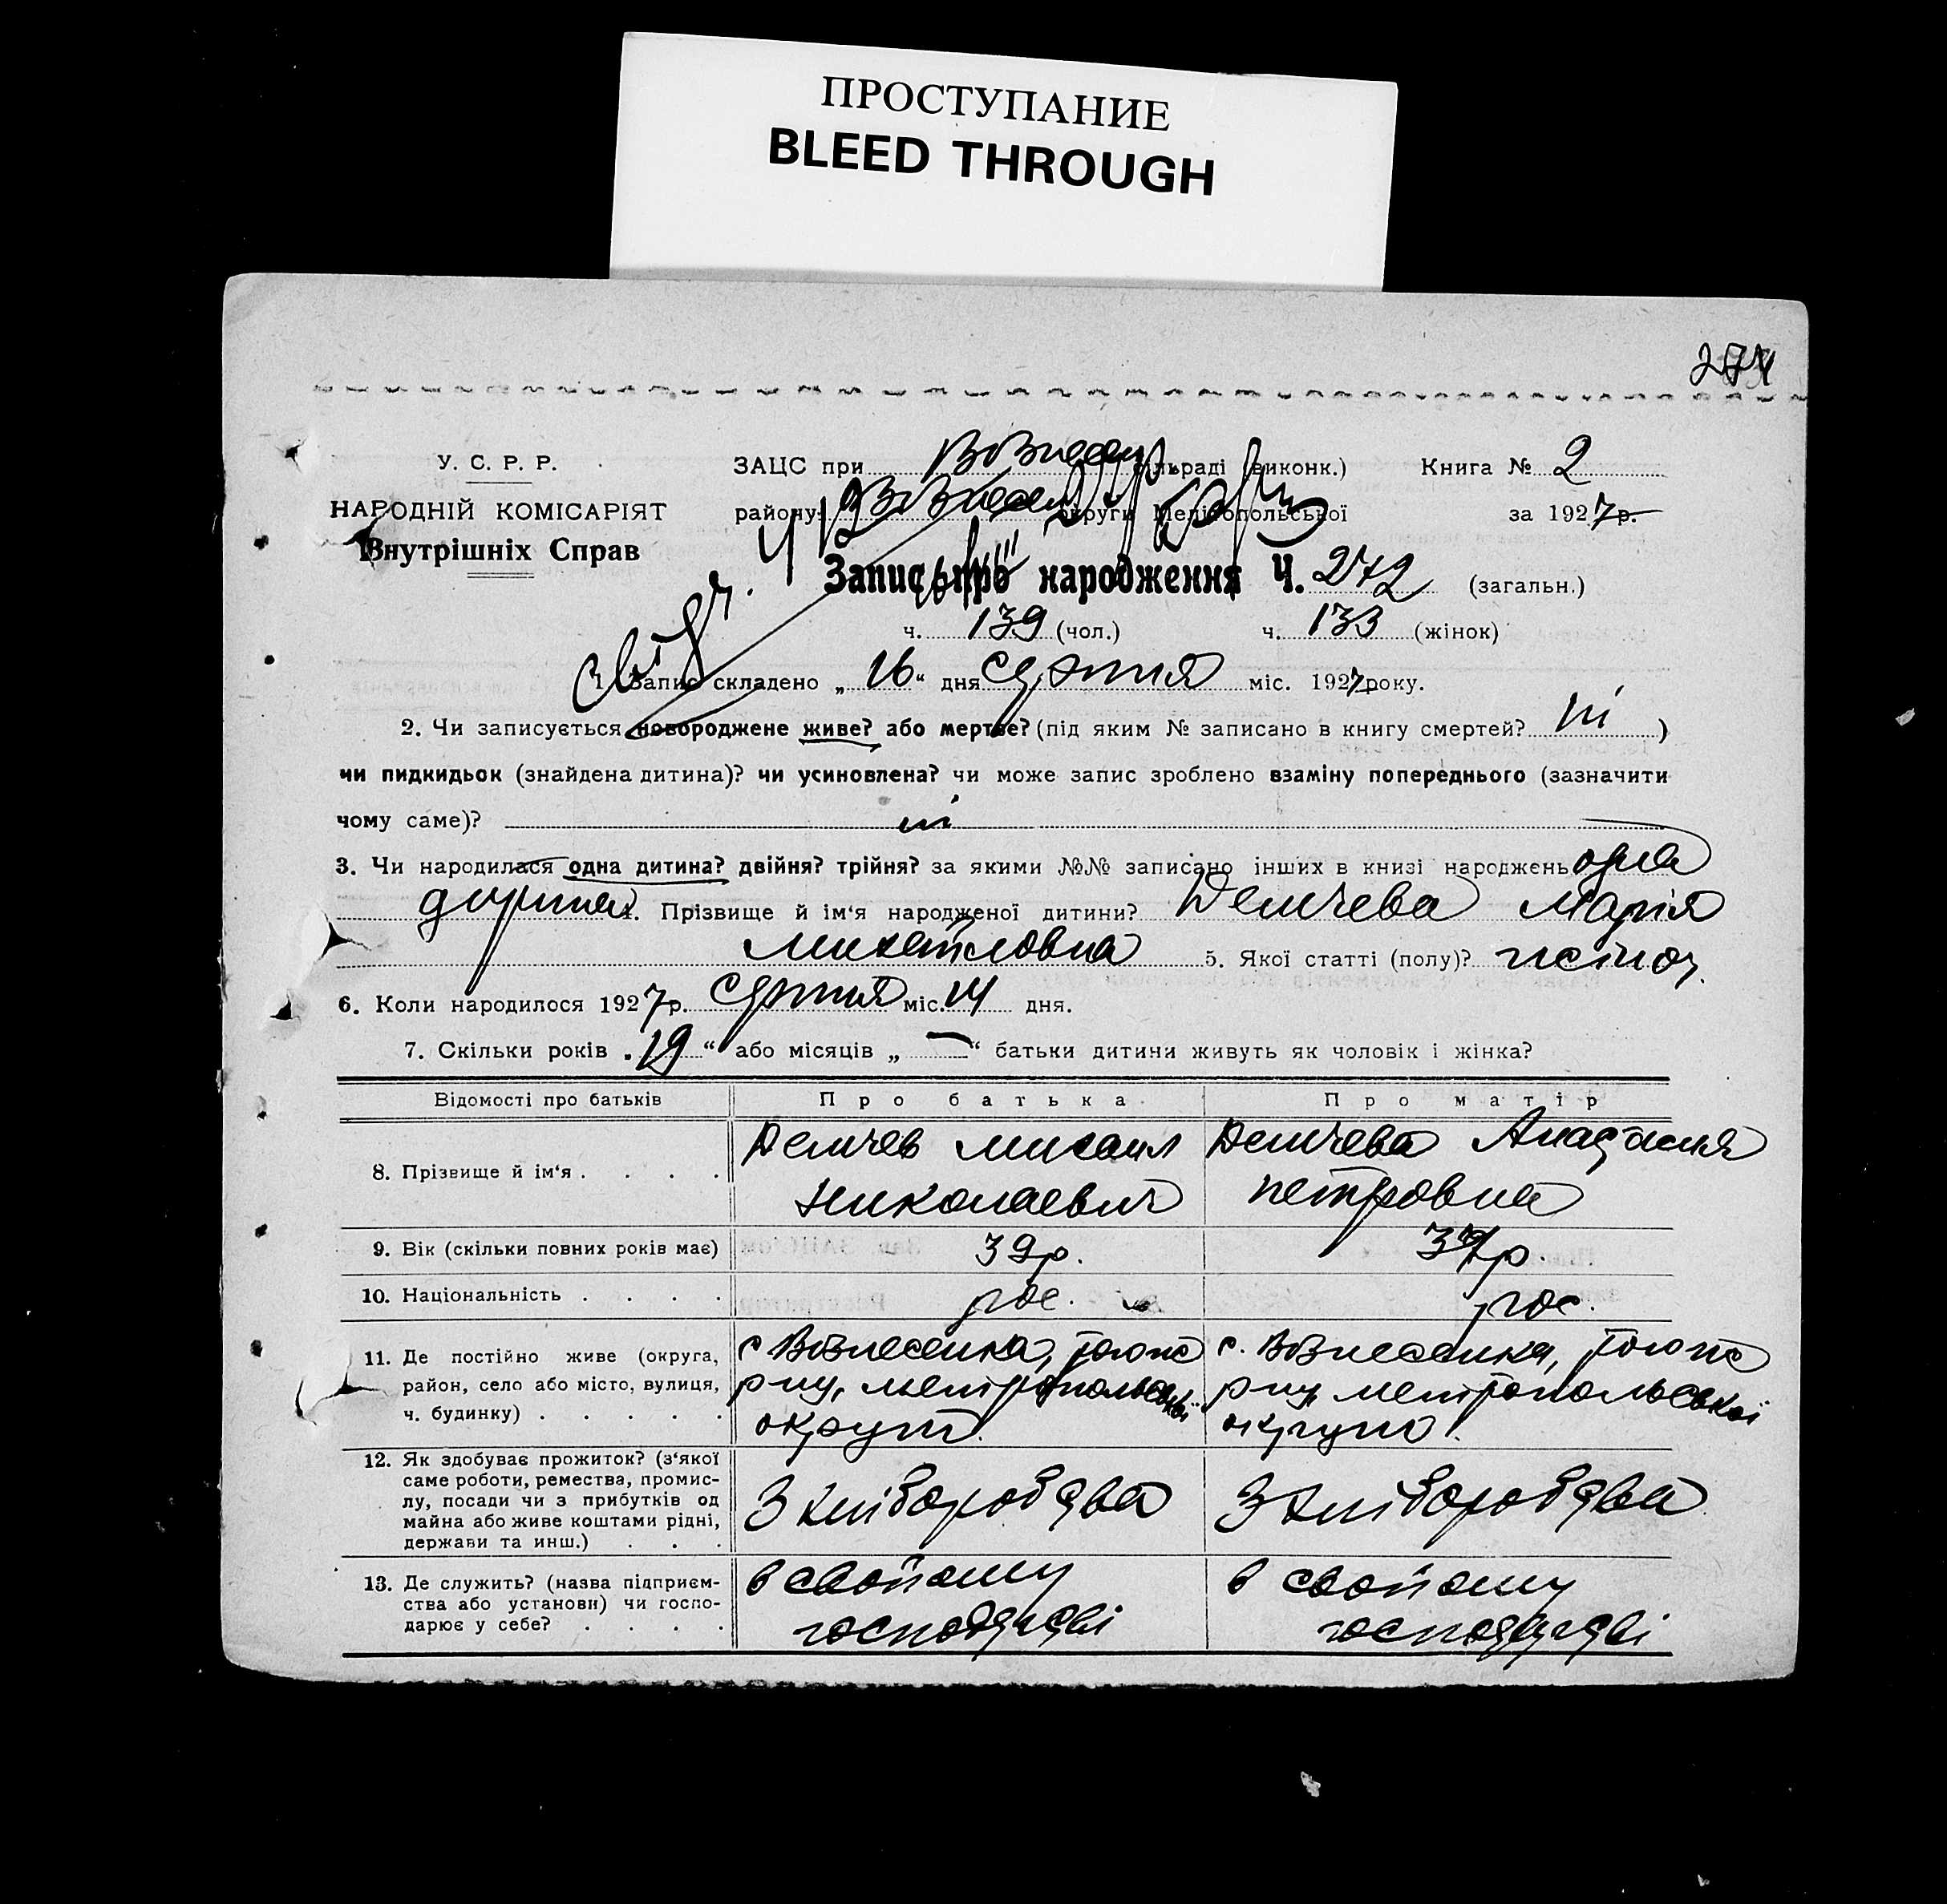 ПРОСТУПАНИЕ
BLEED THROUGH
274
У. С. Р. Р.
НАРОДНІЙ КОМІСАРІЯТ
Внутрішніх Справ
ЗАЦС при Вознесен сільраді (виконк.) Книга № 2
району округи Мелітопольської за 1927 р.
Запис про народження Ч. 272 (загальн.)
ч. 139 (чол.) ч. 133 (жінок)
1. Запис складено „ 16 “ дня серпня міс. 1927 року.
2. Чи записується новороджене живе? або мертве? (під яким № записано в книгу смертей? ні )
чи пидкидьок (знайдена дитина)? чи усиновлена? чи може запис зроблено взаміну попереднього (зазначити
чому саме)? ні
3. Чи народилася одна дитина? двійня? трійня? за якими №№ записано інших в книзі народжень одна
дитина. Прізвище й ім‘я народженої дитини? Демчева Марія
Михайловна 5. Якої статті (полу)? жіноч.
6. Коли народилося 1927 р. серпня міс. 14 дня.
7. Скільки років „ 19 “ або місяців „ — “ батьки дитини живуть як чоловік і жінка?
Відомості про батьків Про батька Про матір
8. Прізвище й ім‘я . . . . Демчев Михаил Демчева Анастасия
Николаевич Петровна
9. Вік (скільки повних років має) 39 р. 37 р.
10. Національність . . . . рос. рос.
11. Де постійно живе (округа, с Вознесенка, того ж с. Вознесенка, того ж
район, село або місто, вулиця, р-ну, Мелітопольської р-ну Мелітопольської
ч. будинку) . . . . . округи. округи.
12. Як здобуває прожиток? (з‘якої
саме роботи, ремества, промис-
лу, посади чи з прибутків од З хліборобства З хліборобства
майна або живе коштами рідні,
держави та инш.) . . .
13. Де служить? (назва підприєм- в свойому в свойому
ства або установи) чи госпо-
дарює у себе? . . . . господарстві господарстві